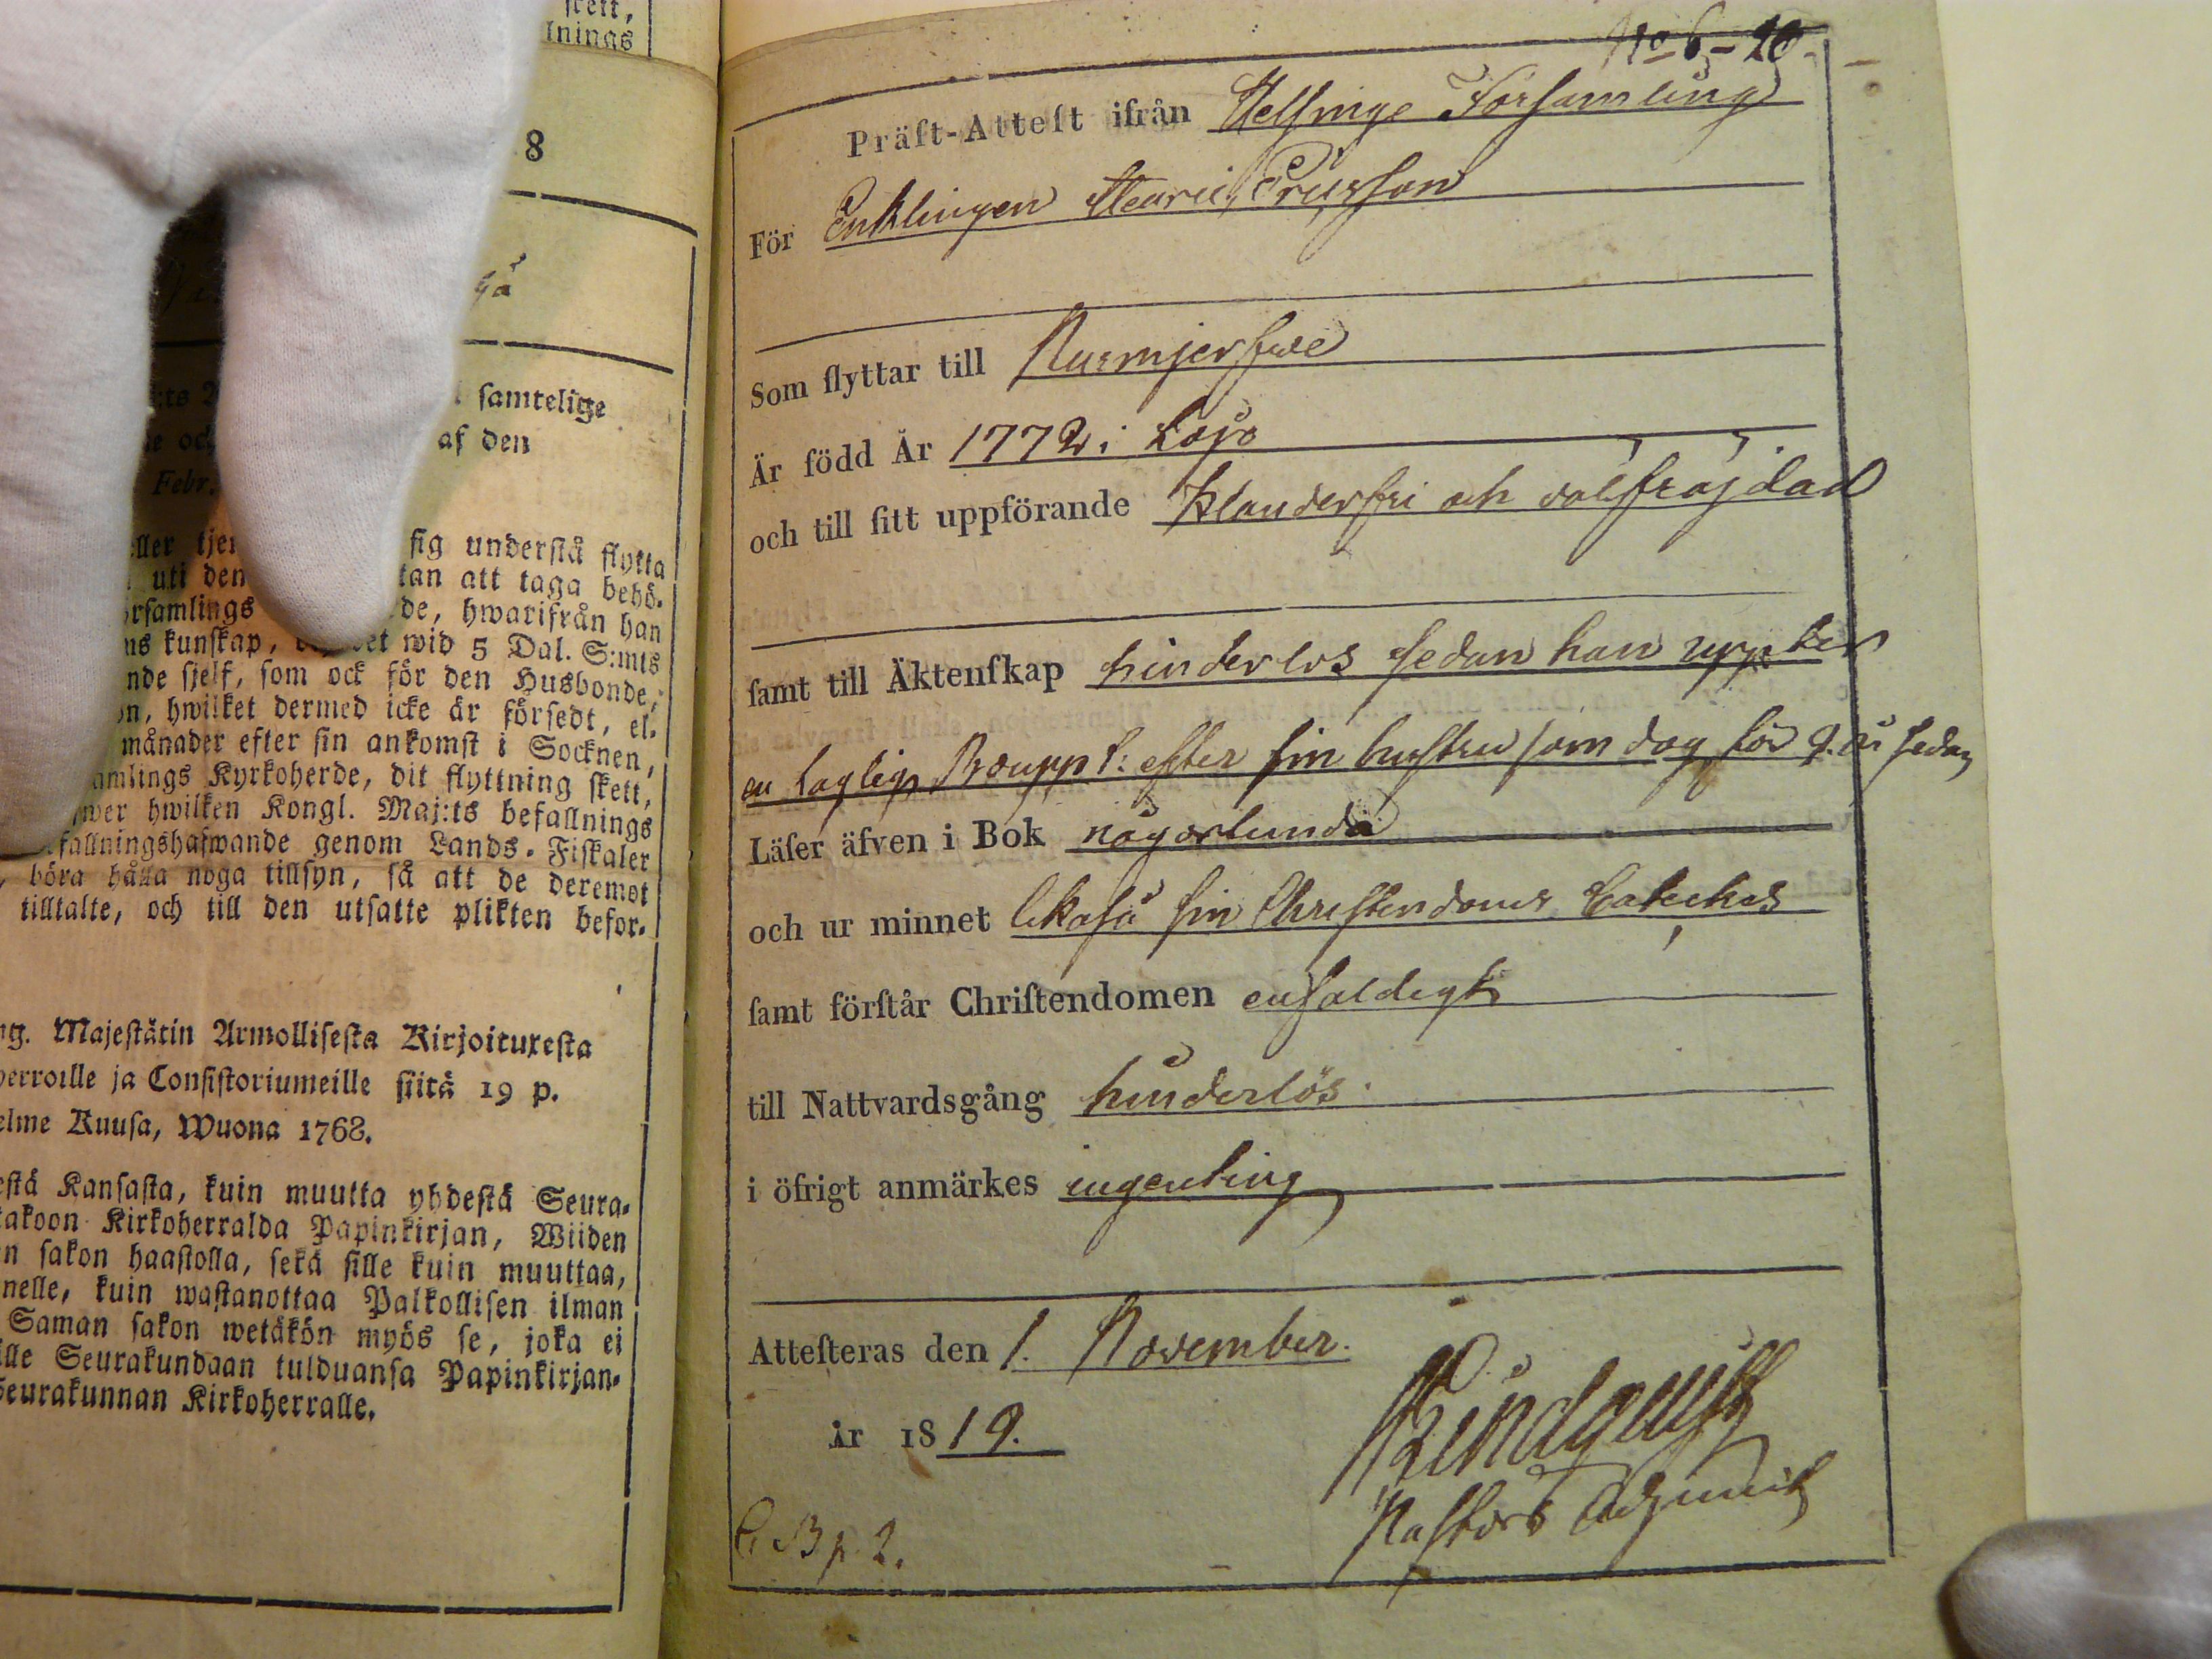 skett,
lnings
8
gå
samtelige
af den
Febr.
eller tjen sig understå flytta
uti den tan att taga behö-
rsamlings de, hwarifrån han
ns kunskap, wid 5 Dal. S:mts
nde sjelf, som ock för den Husbonde,
on, hwilket dermed icke är försedt, el.
månader efter sin ankomst i Socknen,
amlings Kyrkoherde, dit flyttning skett,
wer hwilken Kongl. Maj:ts befallnings
fallningshafwande genom Lands-Fiskaler
, böra hålla noga tillsyn, så att de deremot
tilltalte, och till den utsatte plikten befor-
ng. Majestätin Armollisesta Kirjoituxesta
herroille ja Consistoriumeille siitä 19 p.
elme Kuusa, Wuona 1768.
estä Kansasta, kuin muutta yhdestä Seura-
takoon Kirkoherralda Papinkirjan, Wiiden
n sakon haastolla, sekä sille kuin muuttaa,
nelle, kuin wastanottaa Palkollisen ilman
Saman sakon wetäkön myös se, joka ei
lle Seurakundaan tulduansa Papinkirjan-
Seurakunnan Kirkoherralle.
No 6 - 20.
Präst-Attest ifrån Helsinge Församling
För Enklingen Henric Ericsson
Som flyttar till Nurmjerfwe
Är född År 1772 i Lojo
och till sitt uppförande Klanderfri och välfräjdad
samt till Äktenskap hinderlös sedan han uppter
en laglig Boupp t: efter sin hustru som dog för 9. år sedan
Läser äfven i Bok någorlunda
och ur minnet likaså sin Christendoms Cateches
samt förstår Christendomen enfaldigt
till Nattvardsgång hinderlös.
i öfrigt anmärkes ingenting
Attesteras den 1. November.
år 1819.
Pastors Adjunct
C. B p. 2.